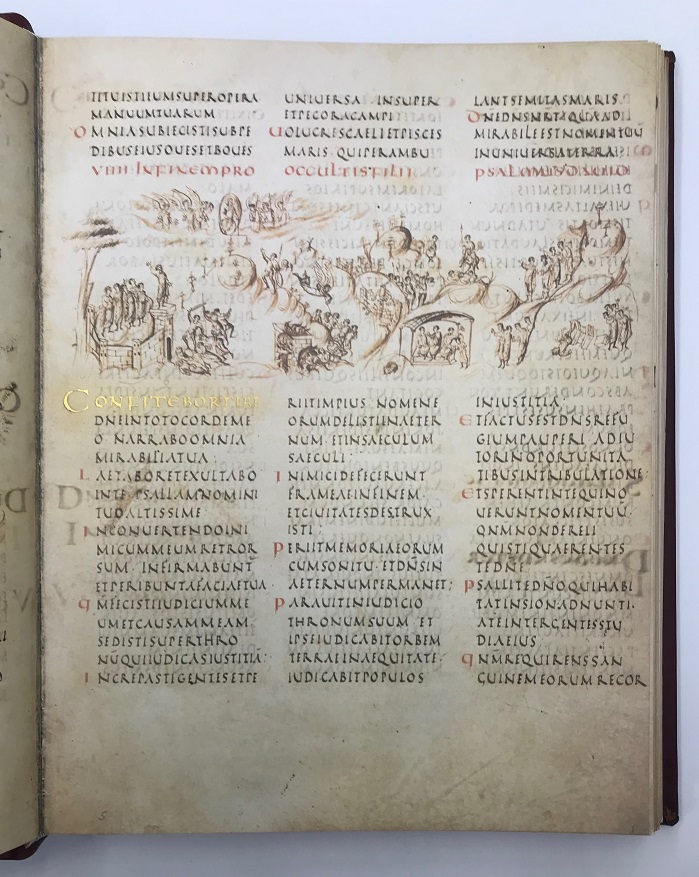 TITUISTIEUMSUPEROPERA
MANUUMTUARUM
OMNIASUBIECISTISUBPE
DIBUSEIUSOUESETBOUES
VIIII INFINEMPRO
UNIUERSA INSUPER
ETPECORACAMPI
UOLUCRESCAELIETPISCES
MARIS QUIPERAMBU
OCCULTISFILII
LANTSEMITASMARIS
DNEDNSNRTQUAAD
MIRABILEESTNOMENTUU
INUNIUERSATERRA
PSALOMUS DAUID
CONFITEBORTIBI
DNEINTOTOCORDEME
O NARRABOOMNIA
MIRABILIATUA
LAETABORETEXULTABO
INTE PSALLAMNOMINI
TUOALTISSIME
INCONUERTENDOINI
MICUMMEUMRETROR
SUM INFIRMABUNT
ETPERIBUNTAFACIAETUA
QMFECISTIIUDICIUMME
UMETCAUSAMMEAM
SEDISTISUPERTHRO
NUQUIIUDICASIUSTITIA
INCREPASTIGENTESETPE
RIITIMPIUS NOMENE
ORUMDELISTIINAETER
NUM ETINSAECULUM
SAECULI
INIMICIDEFECERUNT
FRAMEAEINFINEM
ETCIUITATESDESTRUX
ISTI
PERIITMEMORIAEORUM
CUMSONITU ETDNSIN
AETERNUMPERMANET
PARAUITINIUDICIO
THRONUMSUUM ET
IPSEIUDICABITORBEM
TERRAEINAEQUITATE
IUDICABITPOPULOS
INIUSTITIA
ETFACTUSESTDNSREFU
GIUMPAUPERI ADIU
TORINOPORTUNITA
TIBUSINTRIBULATIONE
ETSPERENTINTEQUINO
UERUNTNOMENTUU
QNMNONDERELI
QUISTIQUAERENTES
TEDNE
PSALLITEDNOQUIHABI
TATINSIONADNUNTI
ATEINTERGENTESSTU
DIAEIUS
QNMREQUIRENSSAN
GUINEMEORUMRECOR